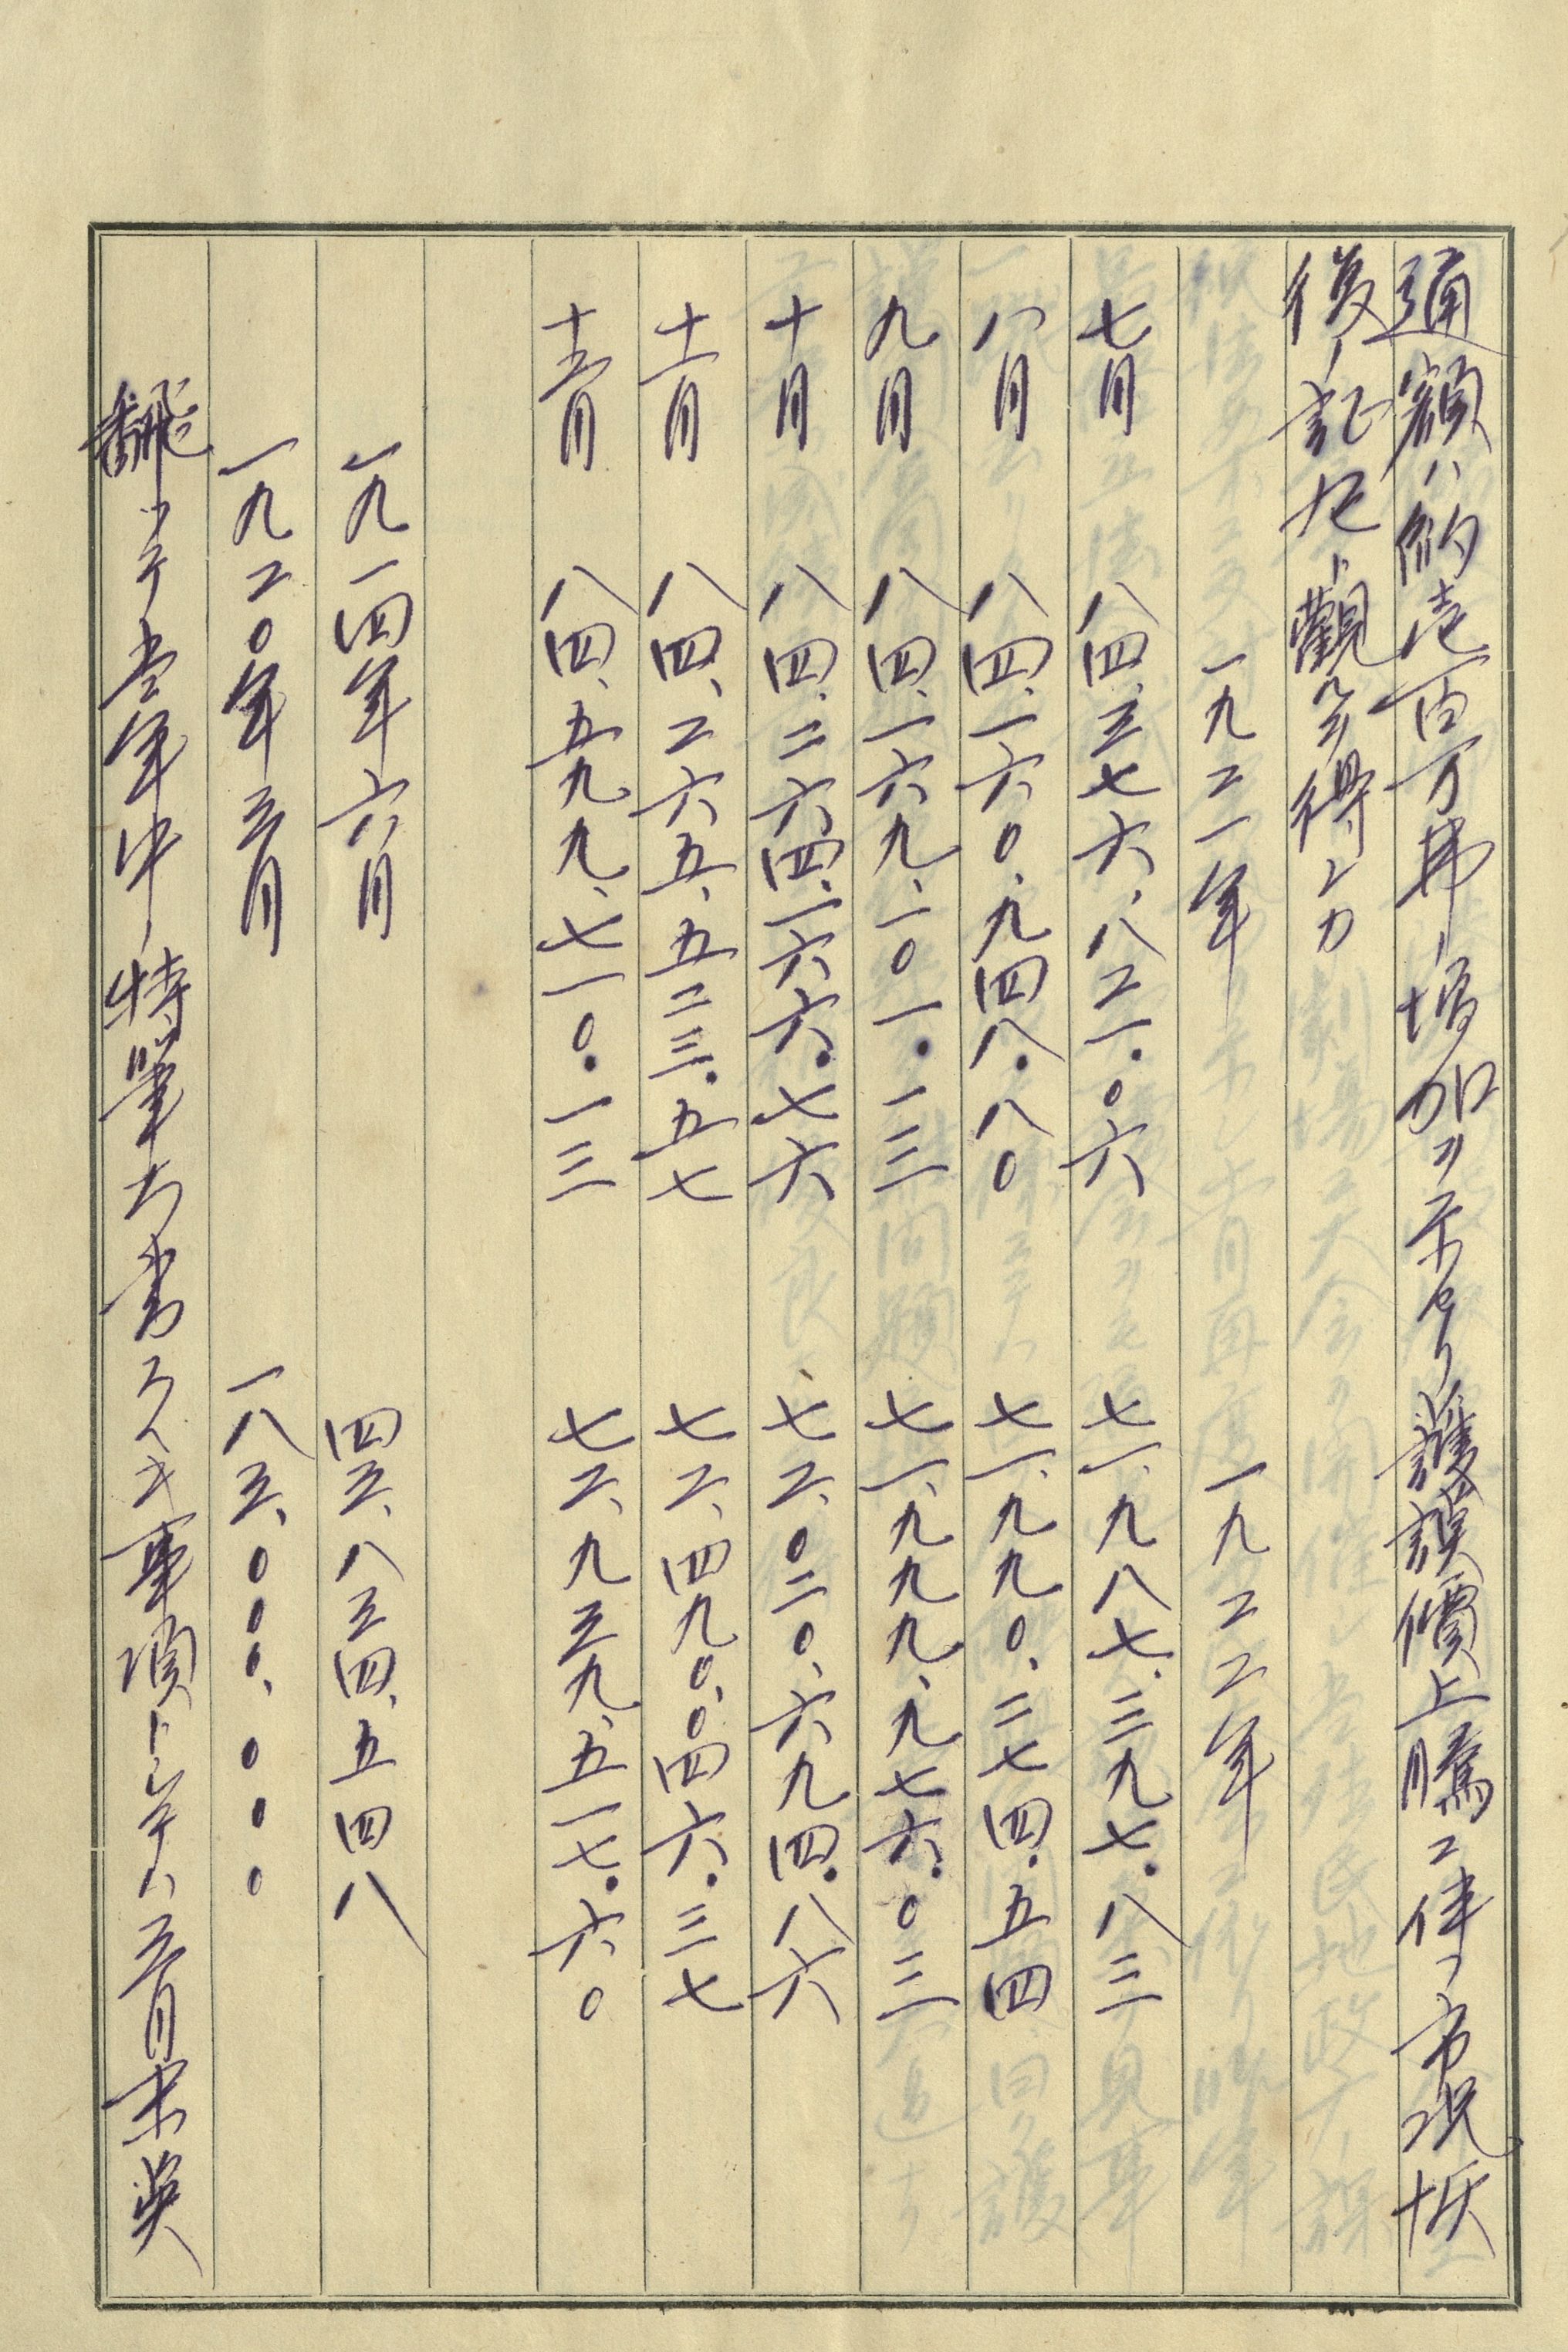 通額ハ約壱百万弗ノ増加ヲ示セリ護謨價上騰ニ伴フ市況恢
復ノ証左ト觀ルヲ得ヘシカ
一九二一年 一九二二年
七月 八四、三七六、八二一.〇六 七一、九八七、三九七.八三
八月 八四、一六〇、九四八.八〇 七一、九九〇、二七四.五四
九月 八四、一六九、一〇一.一三 七一、九九九、九七六.〇三
十月 八四、二六四、一六六.七六 七二、〇二〇、六九四.八六
十一月 八四、二六五、五二三.五七 七二、四九〇、〇四六.三七
十二月 八四、五九九、七一〇.一三 七二、九三九、五一七.六〇
一九一四年六月 四三、八三四、五四八
一九二〇年三月 一八三、〇〇〇、〇〇〇
飜ツテ当年中ノ特筆大書スヘキ事項トシテハ三月末英